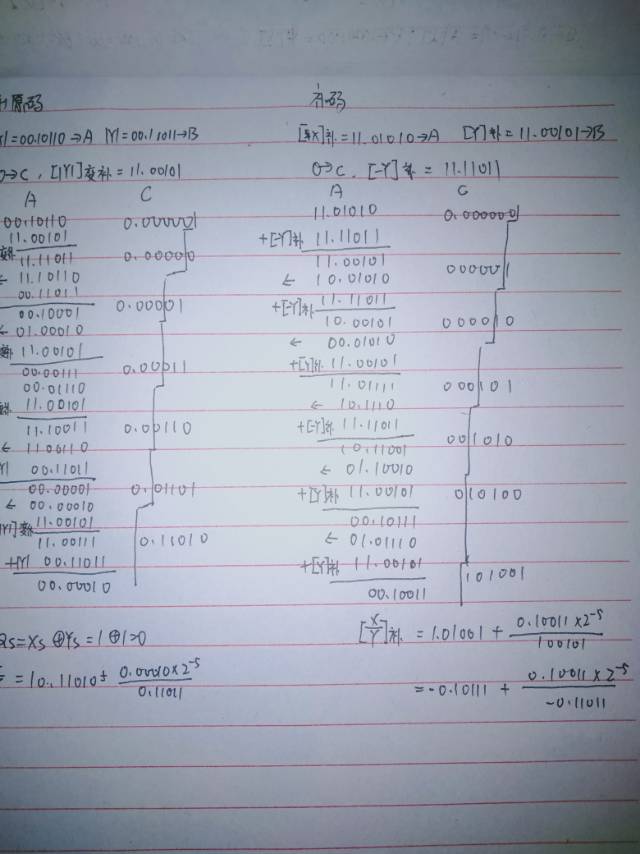 原码
补码
|=00.10110→A |Y|=00.11011→B
[X]补=11.01010→A [Y]补=11.00101→B
0→C, [|Y|]变补=11.00101
0→C, [-Y]补=11.11011
A C
A C
00.10110 0.00000
11.00101
11.11011 0.00000
← 11.10110
00.11011
00.10001 0.00001
← 01.00010
11.00101
00.00111 0.00011
00.01110
11.00101
11.10011 0.00110
← 11.00110
|Y| 00.11011
00.00001 0.01101
← 00.00010
|Y|变补 11.00101
11.00111 0.11010
+|Y| 00.11011
00.00010
11.01010 0.000000
+[-Y]补 11.11011
11.00101
← 10.01010 000001
+[-Y]补 11.11011
10.00101 000010
← 00.01010
+[Y]补 11.00101
11.01111 000101
← 10.1110
+[-Y]补 11.11011
10.11001 001010
← 01.10010
+[Y]补 11.00101 010100
00.10111
← 01.01110
+[Y]补 11.00101
00.10011 101001
Qs=Xs⊕Ys=1⊕1=0
=10.11010+ 0.00010×2^-5 / 0.11011
[X/Y]补=1.01001+ 0.10011×2^-5 / 100101
=-0.10111+ 0.10011×2^-5 / -0.11011